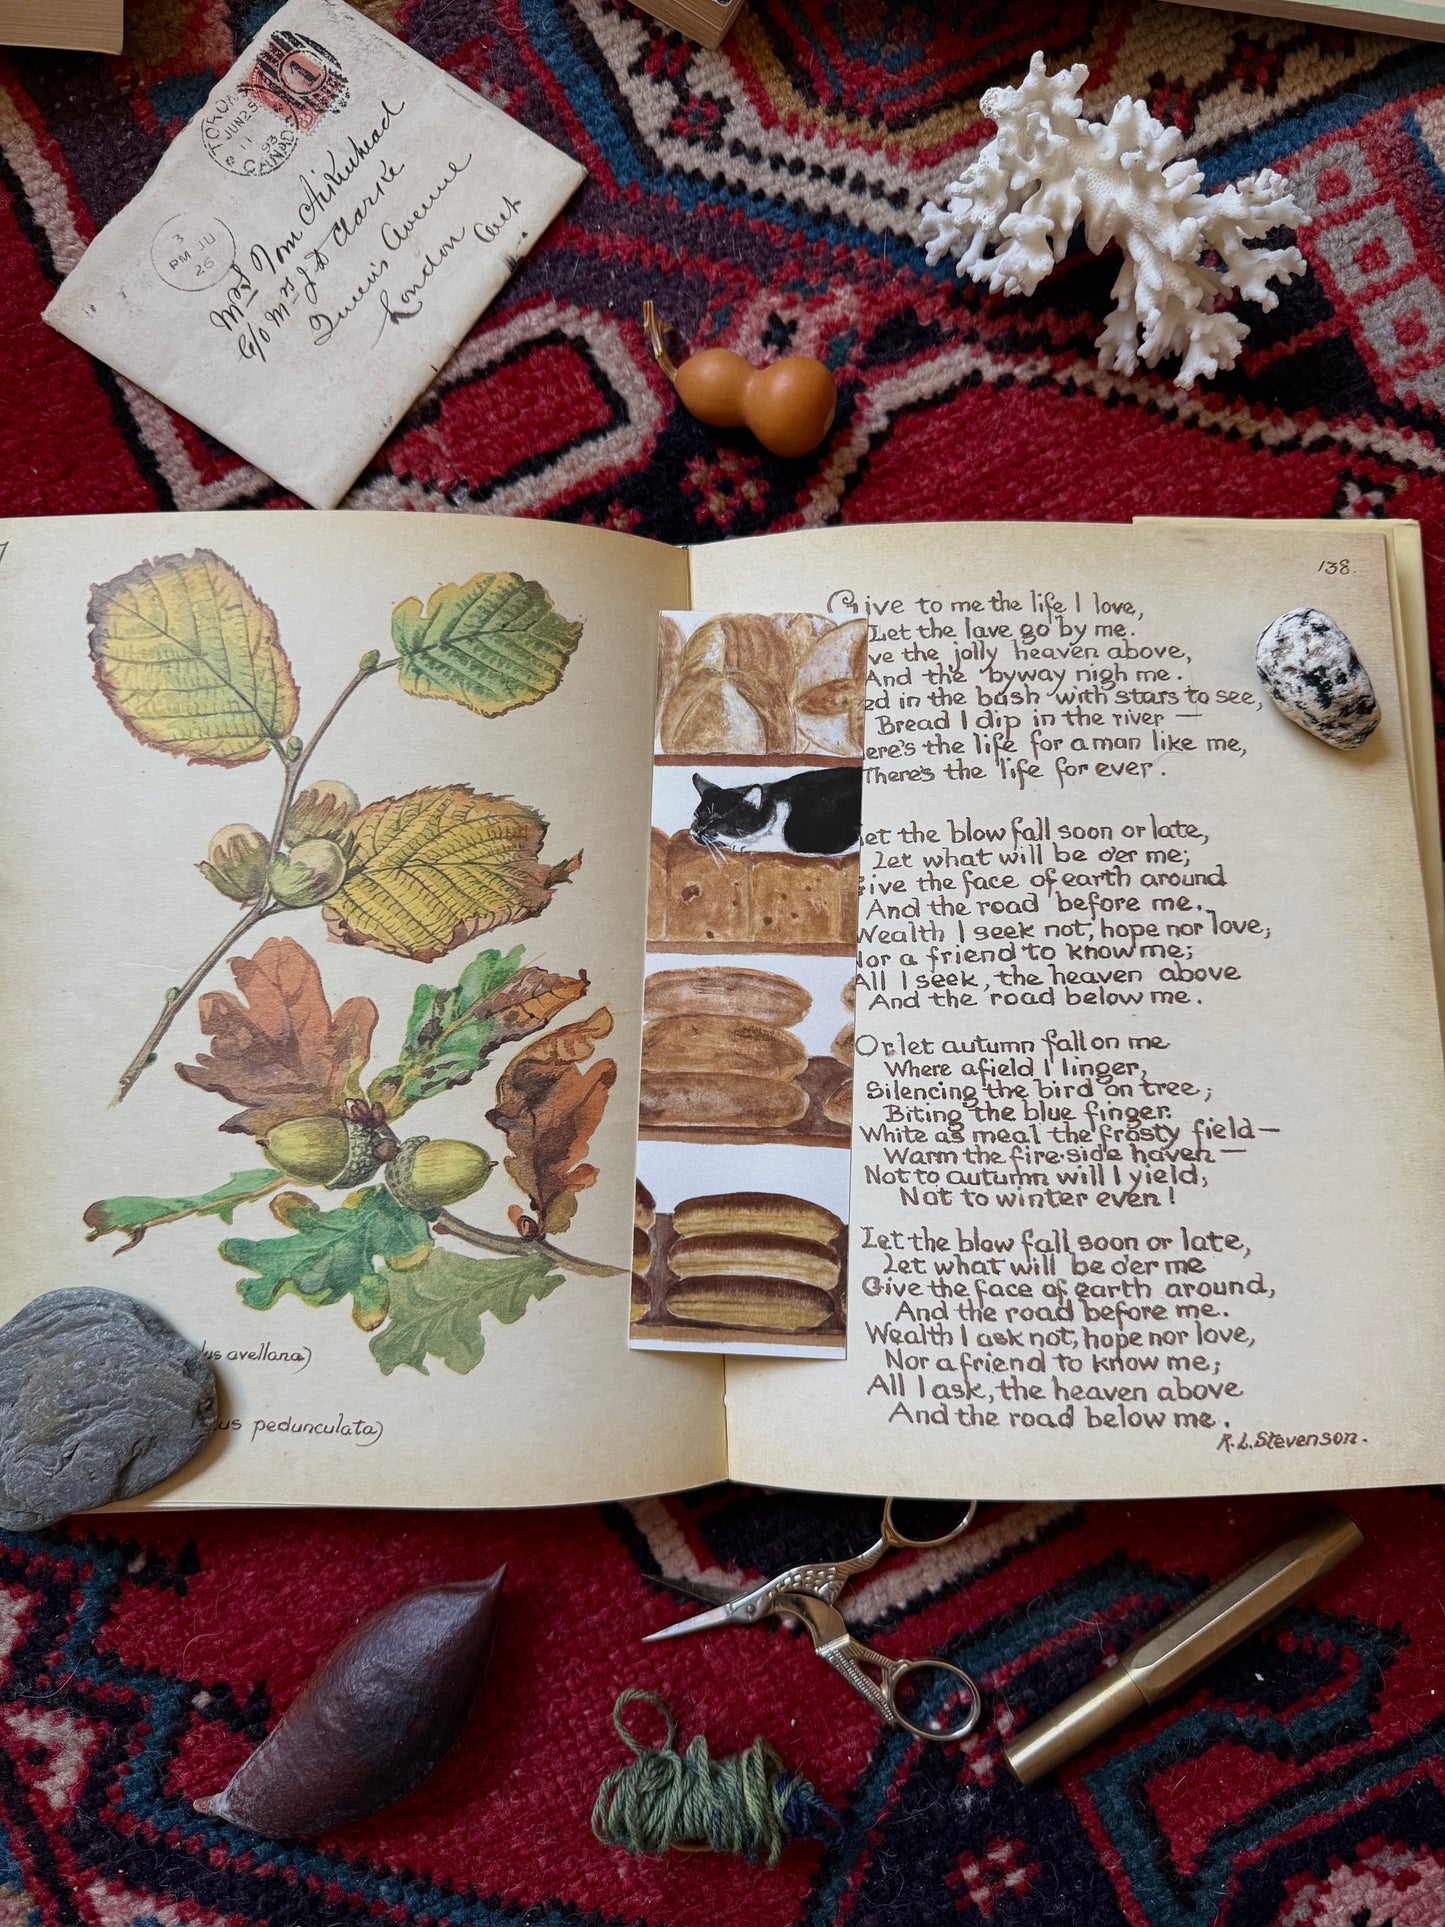 TORONTO
JUN 25
11
93
CANADA
1
3
PM JU
26
Mrs Tom Aikenhead
c/o Mrs J D Clarke
Queen's Avenue
London Ont
138.
Give to me the life I love,
Let the lave go by me.
ve the jolly heaven above,
And the byway nigh me.
ed in the bush with stars to see,
Bread I dip in the river —
ere's the life for a man like me,
There's the life for ever.
et the blow fall soon or late,
Let what will be o'er me;
Give the face of earth around
And the road before me.
Wealth I seek not, hope nor love,
Nor a friend to know me;
All I seek, the heaven above
And the road below me.
Or let autumn fall on me
Where afield I linger,
Silencing the bird on tree,
Biting the blue finger.
White as meal the frosty field —
Warm the fire-side haven —
Not to autumn will I yield,
Not to winter even!
Let the blow fall soon or late,
Let what will be o'er me
Give the face of earth around,
And the road before me.
Wealth I ask not, hope nor love,
Nor a friend to know me;
All I ask, the heaven above
And the road below me.
R. L. Stevenson.
us avellana)
us pedunculata)